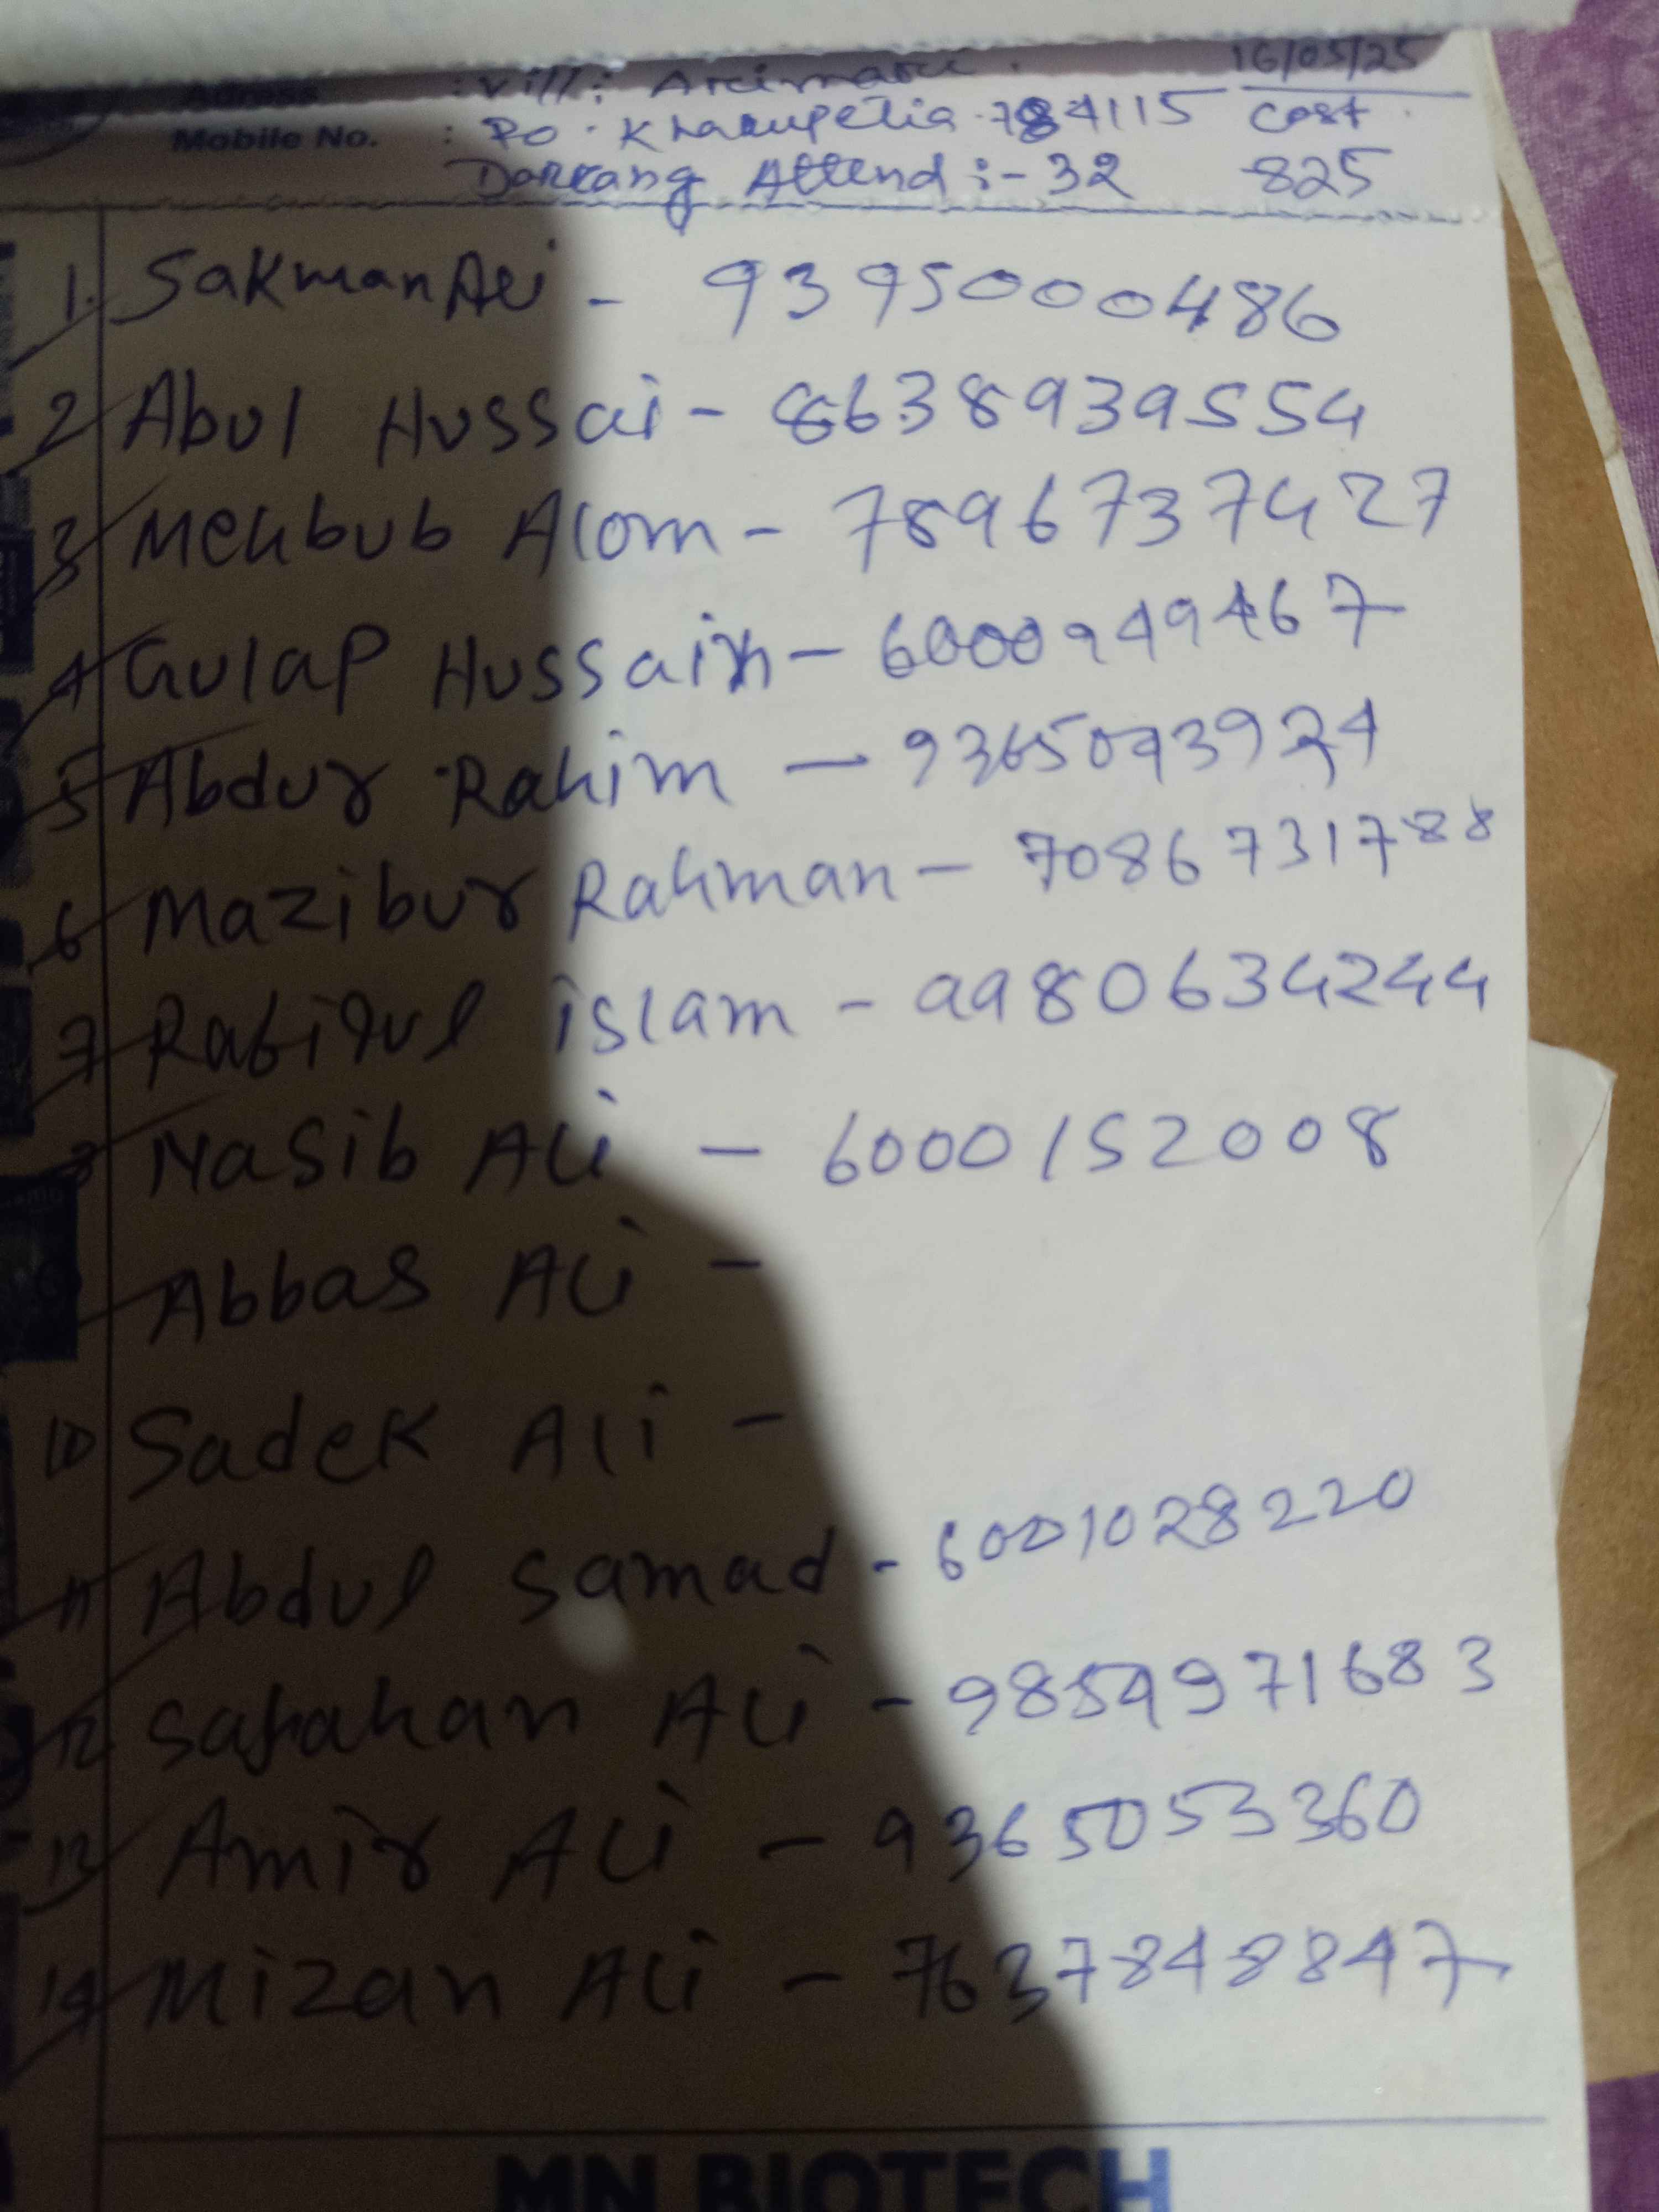 Adress : Vill: 16/05/25
Mobile No. : Po. Kharupetia. 784115 Cost
Darrang Attend :- 32 825
1. Sakman Ali - 9395000486
2 Abul Hussai - 8638939554
3 Mehbub Alom - 7896737427
4 Gulap Hussain - 6000949467
5 Abdur Rahim - 9365093924
6 Mazibur Rahman - 7086731788
7 Rafiqul islam - 9980634244
8 Nasib Ali - 6000152008
Abbas Ali -
10 Sadek Ali -
11 Abdul Samad - 6001028220
12 Ali - 9859971683
13 Amir Ali - 9365053360
14 Mizan Ali - 7637848847
MN BIOTECH